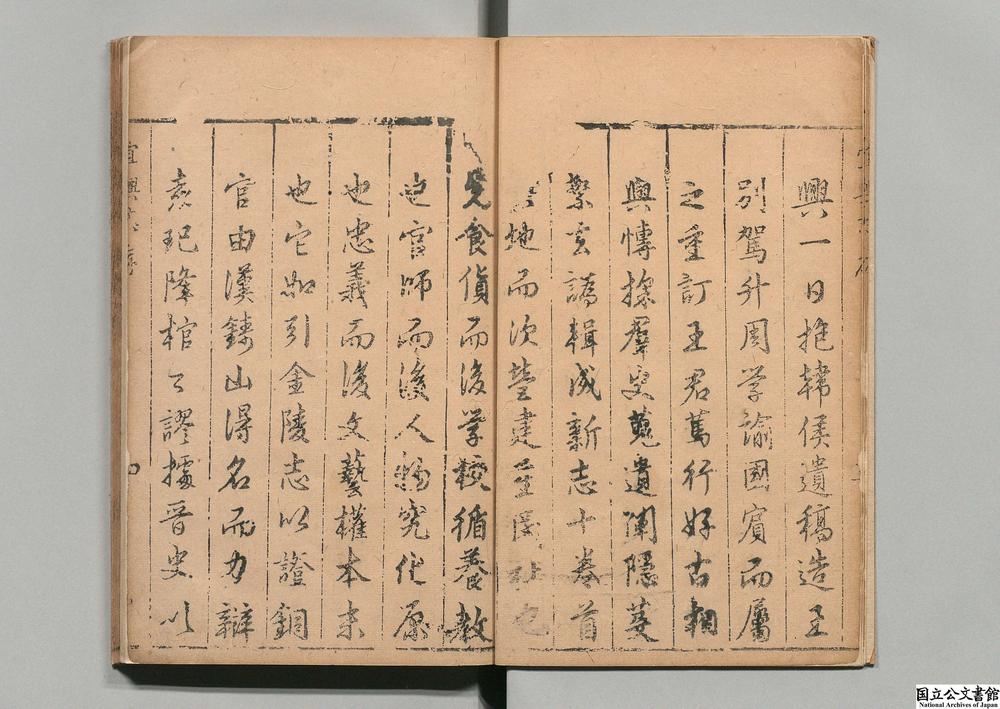 興一日抱韓侯遺稿造王
別駕升周学諭國賓而屬
之重訂王君篤行好古輙
興慱採羣史蒐遺闡隱芟
繁玄譌輯成新志十卷首
地而次營建
食貨而後学校循養教
也官師而後人物究化原
也忠義而後文藝權本末
也它如引金陵志以證銅
官由漢鑄山得名而力辯
袁玘隆棺之謬據晉史以
国立公文書館
National Archives of Japan